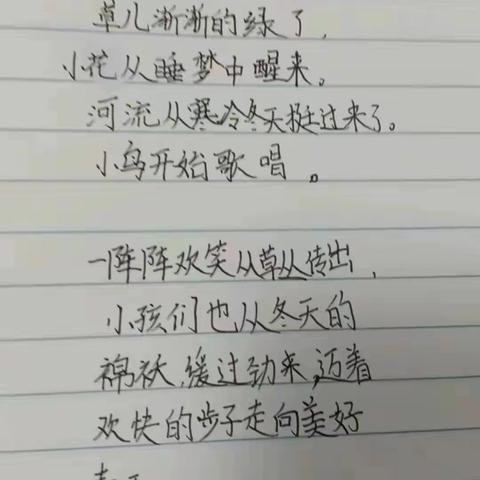 草儿渐渐的绿了，
小花从睡梦中醒来。
河流从寒冷冬天挺过来了。
小鸟开始歌唱。
一阵阵欢笑从草丛传出，
小孩们也从冬天的
棉袄，缓过劲来，迈着
欢快的步子走向美好